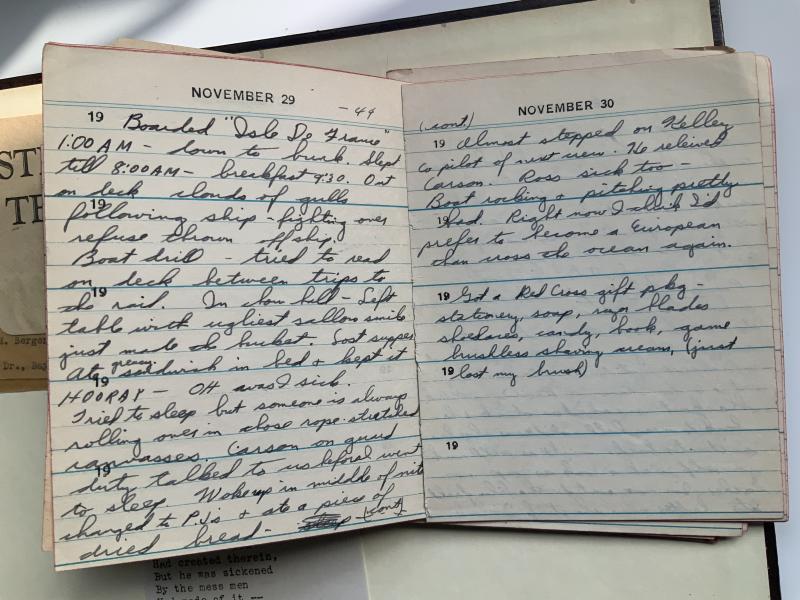 NOVEMBER 29
-44
19 Boarded "Isle De France"
1:00 AM - down to bunk. Slept
till 8:00AM - breakfast 9:30. Out
on deck clouds of gulls
19
following ship - fighting over
refuse thrown off ship.
Boat drill - tried to read
on deck between trips to
19
the rail. In chow hall - Left
table with ugliest sallow smile
just made the bucket. Lost supper
Ate greasy sandwich in bed & kept it
19
HOORAY - OH was I sick.
Tried to sleep but someone is always
rolling over in those rope-stretched
canvasses. Carson on guard
duty talked to us before I went
19
to sleep. Woke up in middle of nite
changed to PJ's & ate a piece of
dried bread - (cont)
NOVEMBER 30
(cont)
19 Almost stepped on Kelley
co pilot of next crew. He relieved
Carson. Ross sick too -
Boat rocking & pitching pretty
19 bad. Right now I think I'd
prefer to become a European
than cross the ocean again.
19 Got a Red Cross gift pckg -
stationery, soap, razor blades
shoelaces, candy, book, game
brushless shaving cream, (just
19 lost my brush)
19
ST
TH
. Berge
Dr., Bay
Had created therein,
But he was sickened
By the mess men
Had made of it --